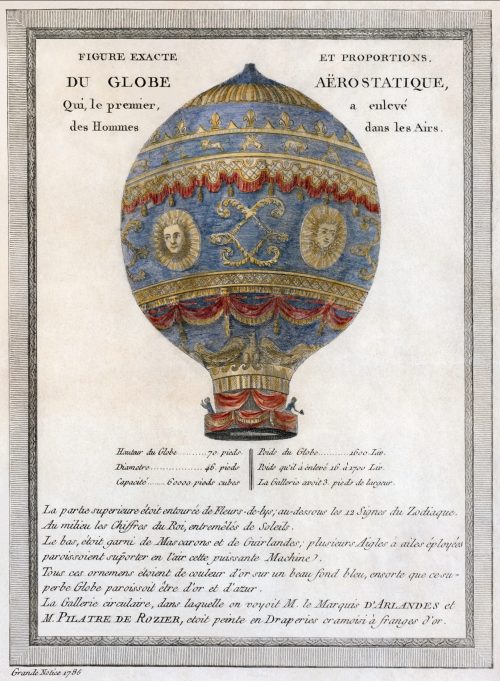 FIGURE EXACTE ET PROPORTIONS.
DU GLOBE AËROSTATIQUE,
Qui, le premier, a enlevé
des Hommes dans les Airs.
Hauteur du Globe..........70. pieds
Diametre..............46. pieds
Capacité......60000 pieds cubes
Poids du Globe..........1600. Liv.
Poids qu'il a enlevé 16 à 1700 Liv.
La Gallerie avoit 3. pieds de largeur.
La partie superieure étoit entourée de Fleurs-de-lys; au-dessous les 12 Signes du Zodiaque.
Au milieu les Chiffres du Roi, entremêlés de Soleils.
Le bas, étoit garni de Mascarons et de Guirlandes; plusieurs Aigles à ailes éployées
paroissoient supórter en l'air cette puissante Machine.
Tous ces ornemens étoient de couleur d'or sur un beau fond bleu, ensorte que ce su-
perbe Globe paroissoit être d'or et d'azur.
La Gallerie circulaire, dans laquelle on voyoit M. le Marquis D'ARLANDES et
M. PILATRE DE ROZIER, etoit peinte en Draperies cramoisi à franges d'or.
Grande Notice 1786